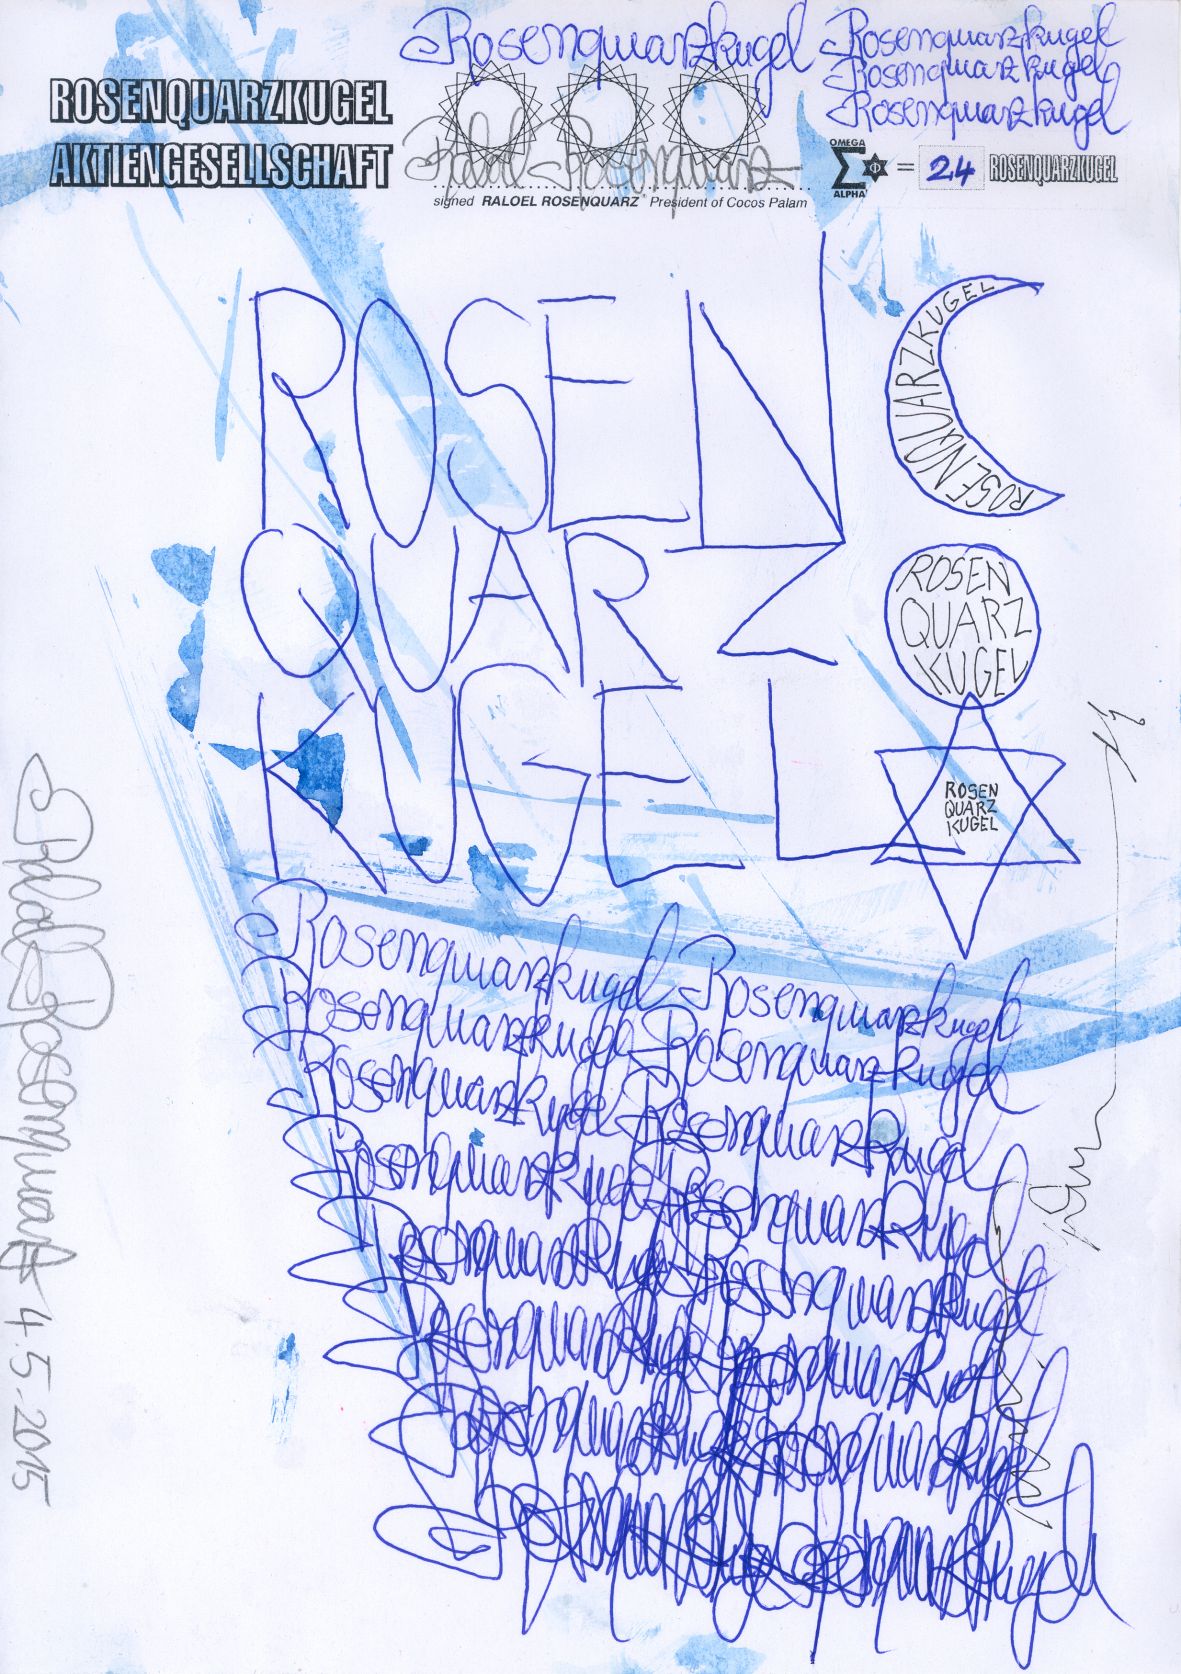 Rosenquarzkugel Rosenquarzkugel
Rosenquarzkugel
Rosenquarzkugel
ROSENQUARZKUGEL
AKTIENGESELLSCHAFT
Raloel Rosenquarz
signed RALOEL ROSENQUARZ President of Cocos Palam
OMEGA
Σ Φ = 24 ROSENQUARZKUGEL
ALPHA
ROSEN
QUARZ
KUGEL
ROSENQUARZKUGEL
ROSEN
QUARZ
KUGEL
ROSEN
QUARZ
KUGEL
Rosenquarzkugel Rosenquarzkugel
Rosenquarzkugel Rosenquarzkugel
Rosenquarzkugel Rosenquarzkugel
Rosenquarzkugel Rosenquarzkugel
Rosenquarzkugel Rosenquarzkugel
Rosenquarzkugel Rosenquarzkugel
Rosenquarzkugel Rosenquarzkugel
Raloel Rosenquarz 4.5.2015